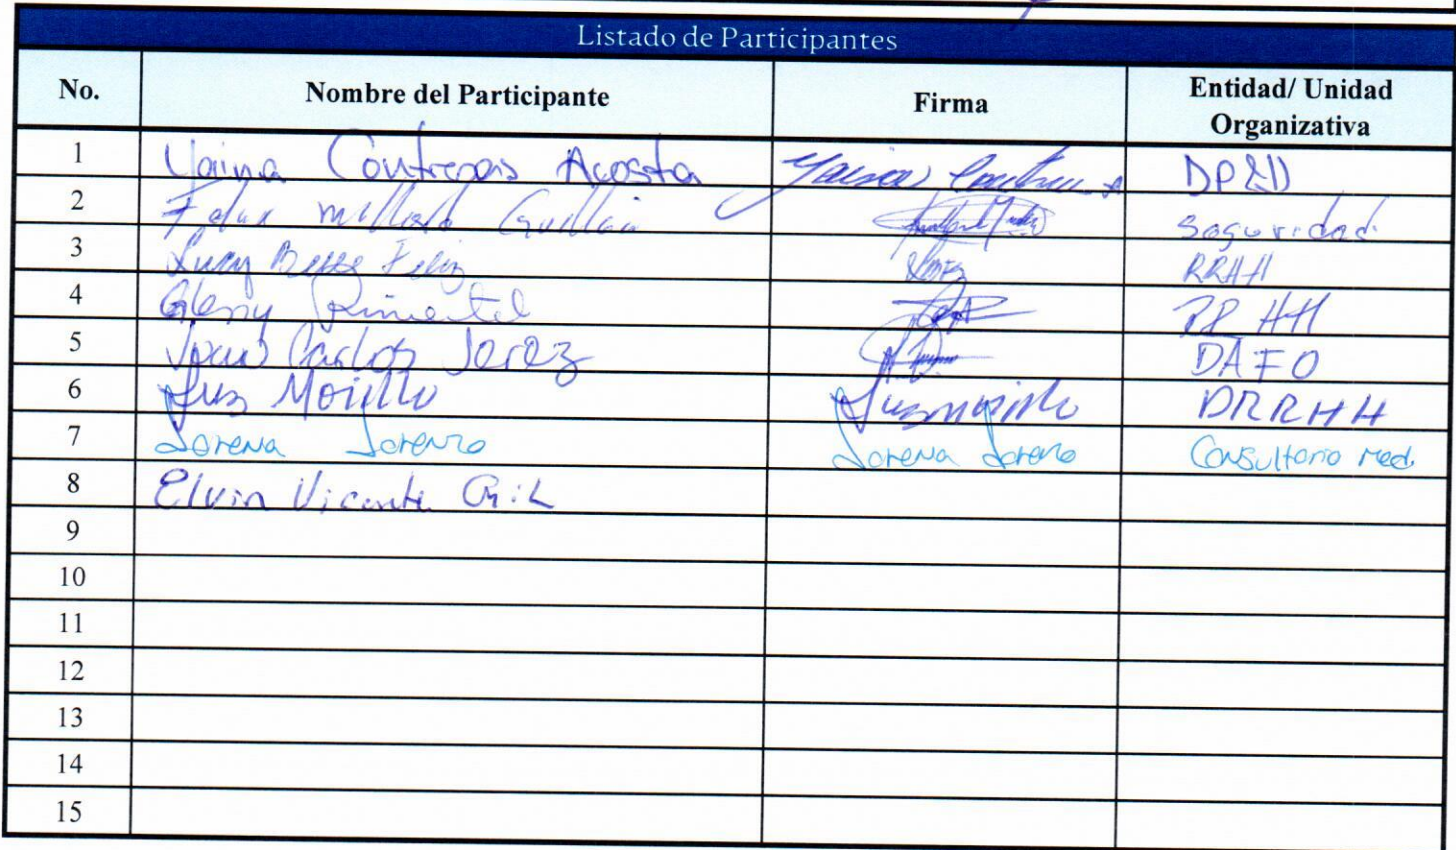 Listado de Participantes
No. Nombre del Participante Firma Entidad/ Unidad Organizativa
1 Yaina Contreras Acosta DP&D
2 Seguridad
3 Feliz RRHH
4 Glenny Pimentel RRHH
5 Juan Carlos Jerez DAFO
6 Luz Morillo Luz Morillo DRRHH
7 Lorena Lorenzo Lorena Lorenzo Consultorio Med.
8 Elvin Vicente Gil
9
10
11
12
13
14
15